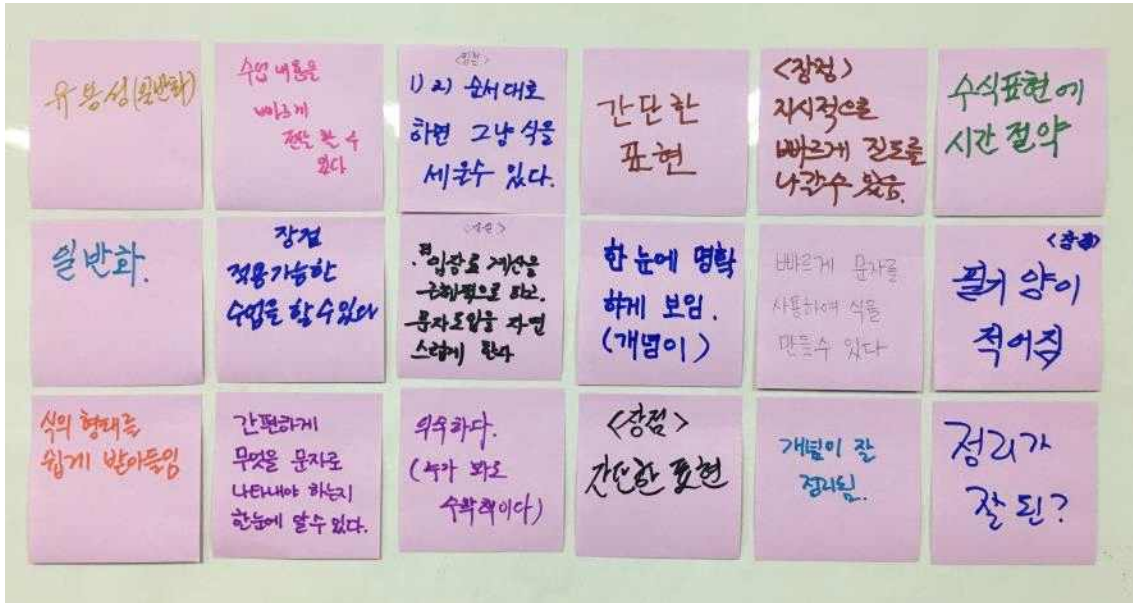 유용성(일반화)
수업 내용을
빠르게
전달 할 수
있다
<장점>
1) 2) 순서대로
하면 그냥 식을
세울수 있다.
간단한
표현
<장점>
지시적으로
빠르게 진도를
나갈수 있음.
수식표현에
시간 절약
일반화.
장점
적용가능한
수업을 할 수 있다
<장점>
계산을
하고.
문자도입을 자연
스럽게 한다
한 눈에 명확
하게 보임.
(개념이)
빠르게 문자를
사용하여 식을
만들수 있다
<장점>
필기 양이
적어짐
식의 형태를
쉽게 받아들임
간편하게
무엇을 문자로
나타내야 하는지
한눈에 알 수 있다.
익숙하다.
(누가 봐도
수학적이다)
<장점>
간단한 표현
개념이 잘
정리됨.
정리가
잘 된?